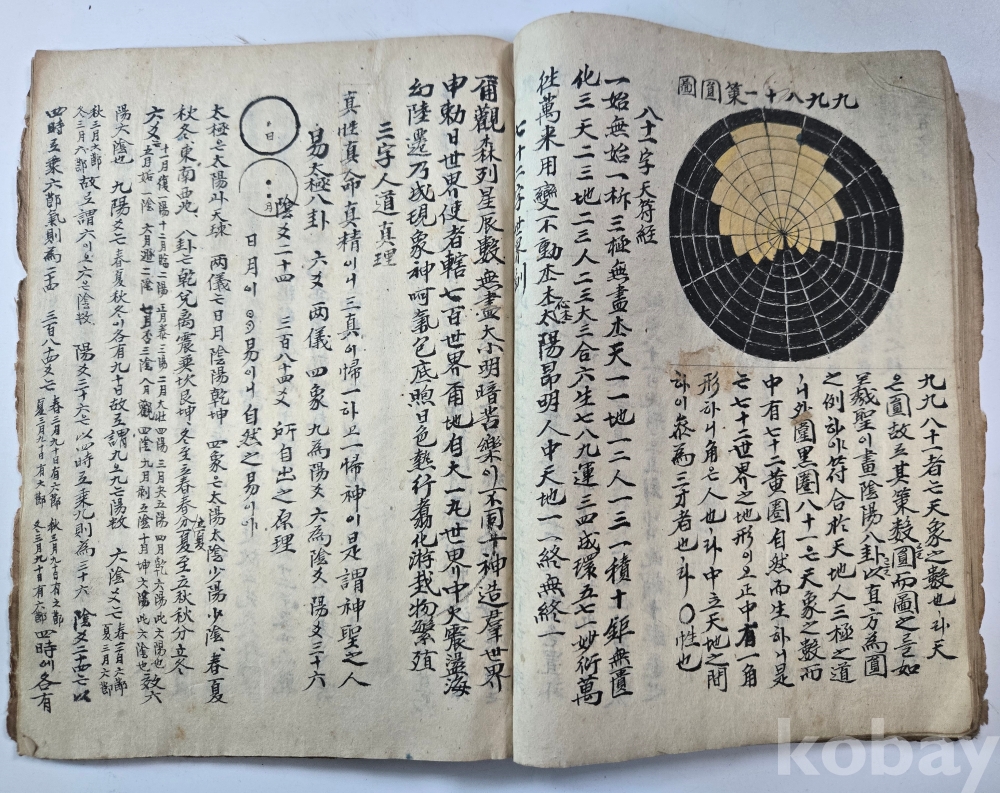 九九八十一第圓圖
九九八十者七天象之數也라天
은圓故로其策數圓而圖之言如
羲聖이畫陰陽八卦以直方為圓
之例하야符合於天地人三極之道
니外圍黑圈八十一七天象之數而
中有七十二黃圈自然而生하니是
七七十二世界之地形이오正中有一角
形하니角은人也라中立天地之間
하야叅為三才者也라 ○性也
八十一字天符經
一始無始一析三極無盡本天一一地一二人一三一積十鉅無匱
化三天二三地二三人二三大三合六生七八九運三四成環五七一妙衍萬
徃萬來用變不動本本心本太陽昂明人中天地一一終無終一
七十二字世界訓
爾觀森列星辰數無盡大小明暗苦樂이不同 神造羣世界
神勅日世界使者轄七百世界爾地自大一丸世界中火震盪海
幻陸遷乃成現象神呵氣包底煦日色熱行翥化游栽物繁殖
三字人道真理
真性真命真精이니三真이歸一하고一歸神이니是謂神聖之人
易太極八卦 六爻 兩儀 四象 九為陽爻 六為陰爻 陽爻三十六
陰爻二十四 三百八十四爻 所自出之原理
日
月
日月이 易이니自然之易이라
太極은太陽과天球 兩儀七日月陰陽乾坤 四象은太陽太陰少陽少陰 春夏
秋冬 東南西北 八卦七乾兌离震巽坎艮坤 冬至立春春分立夏夏至立秋秋分立冬
六爻七
十一月復一陽十二月臨二陽 正月泰三陽二月大壯四陽 三月夬五陽四月乾六陽此六陽也
五月姤一陰 六月遯二陰 七月否三陰八月觀四陰 九月剝五陰十月坤六陰此六陰也
陽六陰也 九陽爻七春夏秋冬이各有九十日故로謂九오九七陽數 六陰爻七
故로謂六이오六은陰數 陽爻三十六七以四時로乘九則為三十六 陰爻二十四七以
四時로乘六節氣則為二十四 三百八十四爻七
春三月九十日有六節
夏三月九十日有六節
秋三月九十日有六節
冬三月九十日有六節
四時에各有
kobay